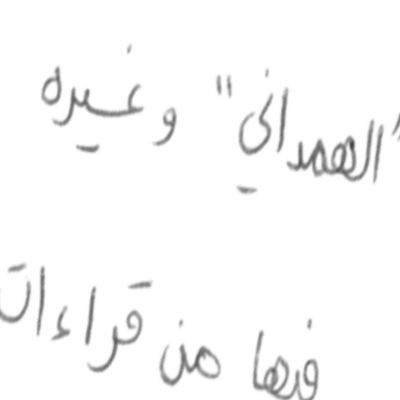 "الهمداني" وغيره
فيها من قراءات